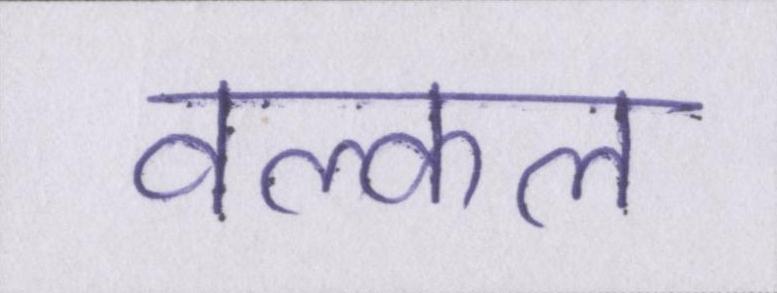 वल्कल